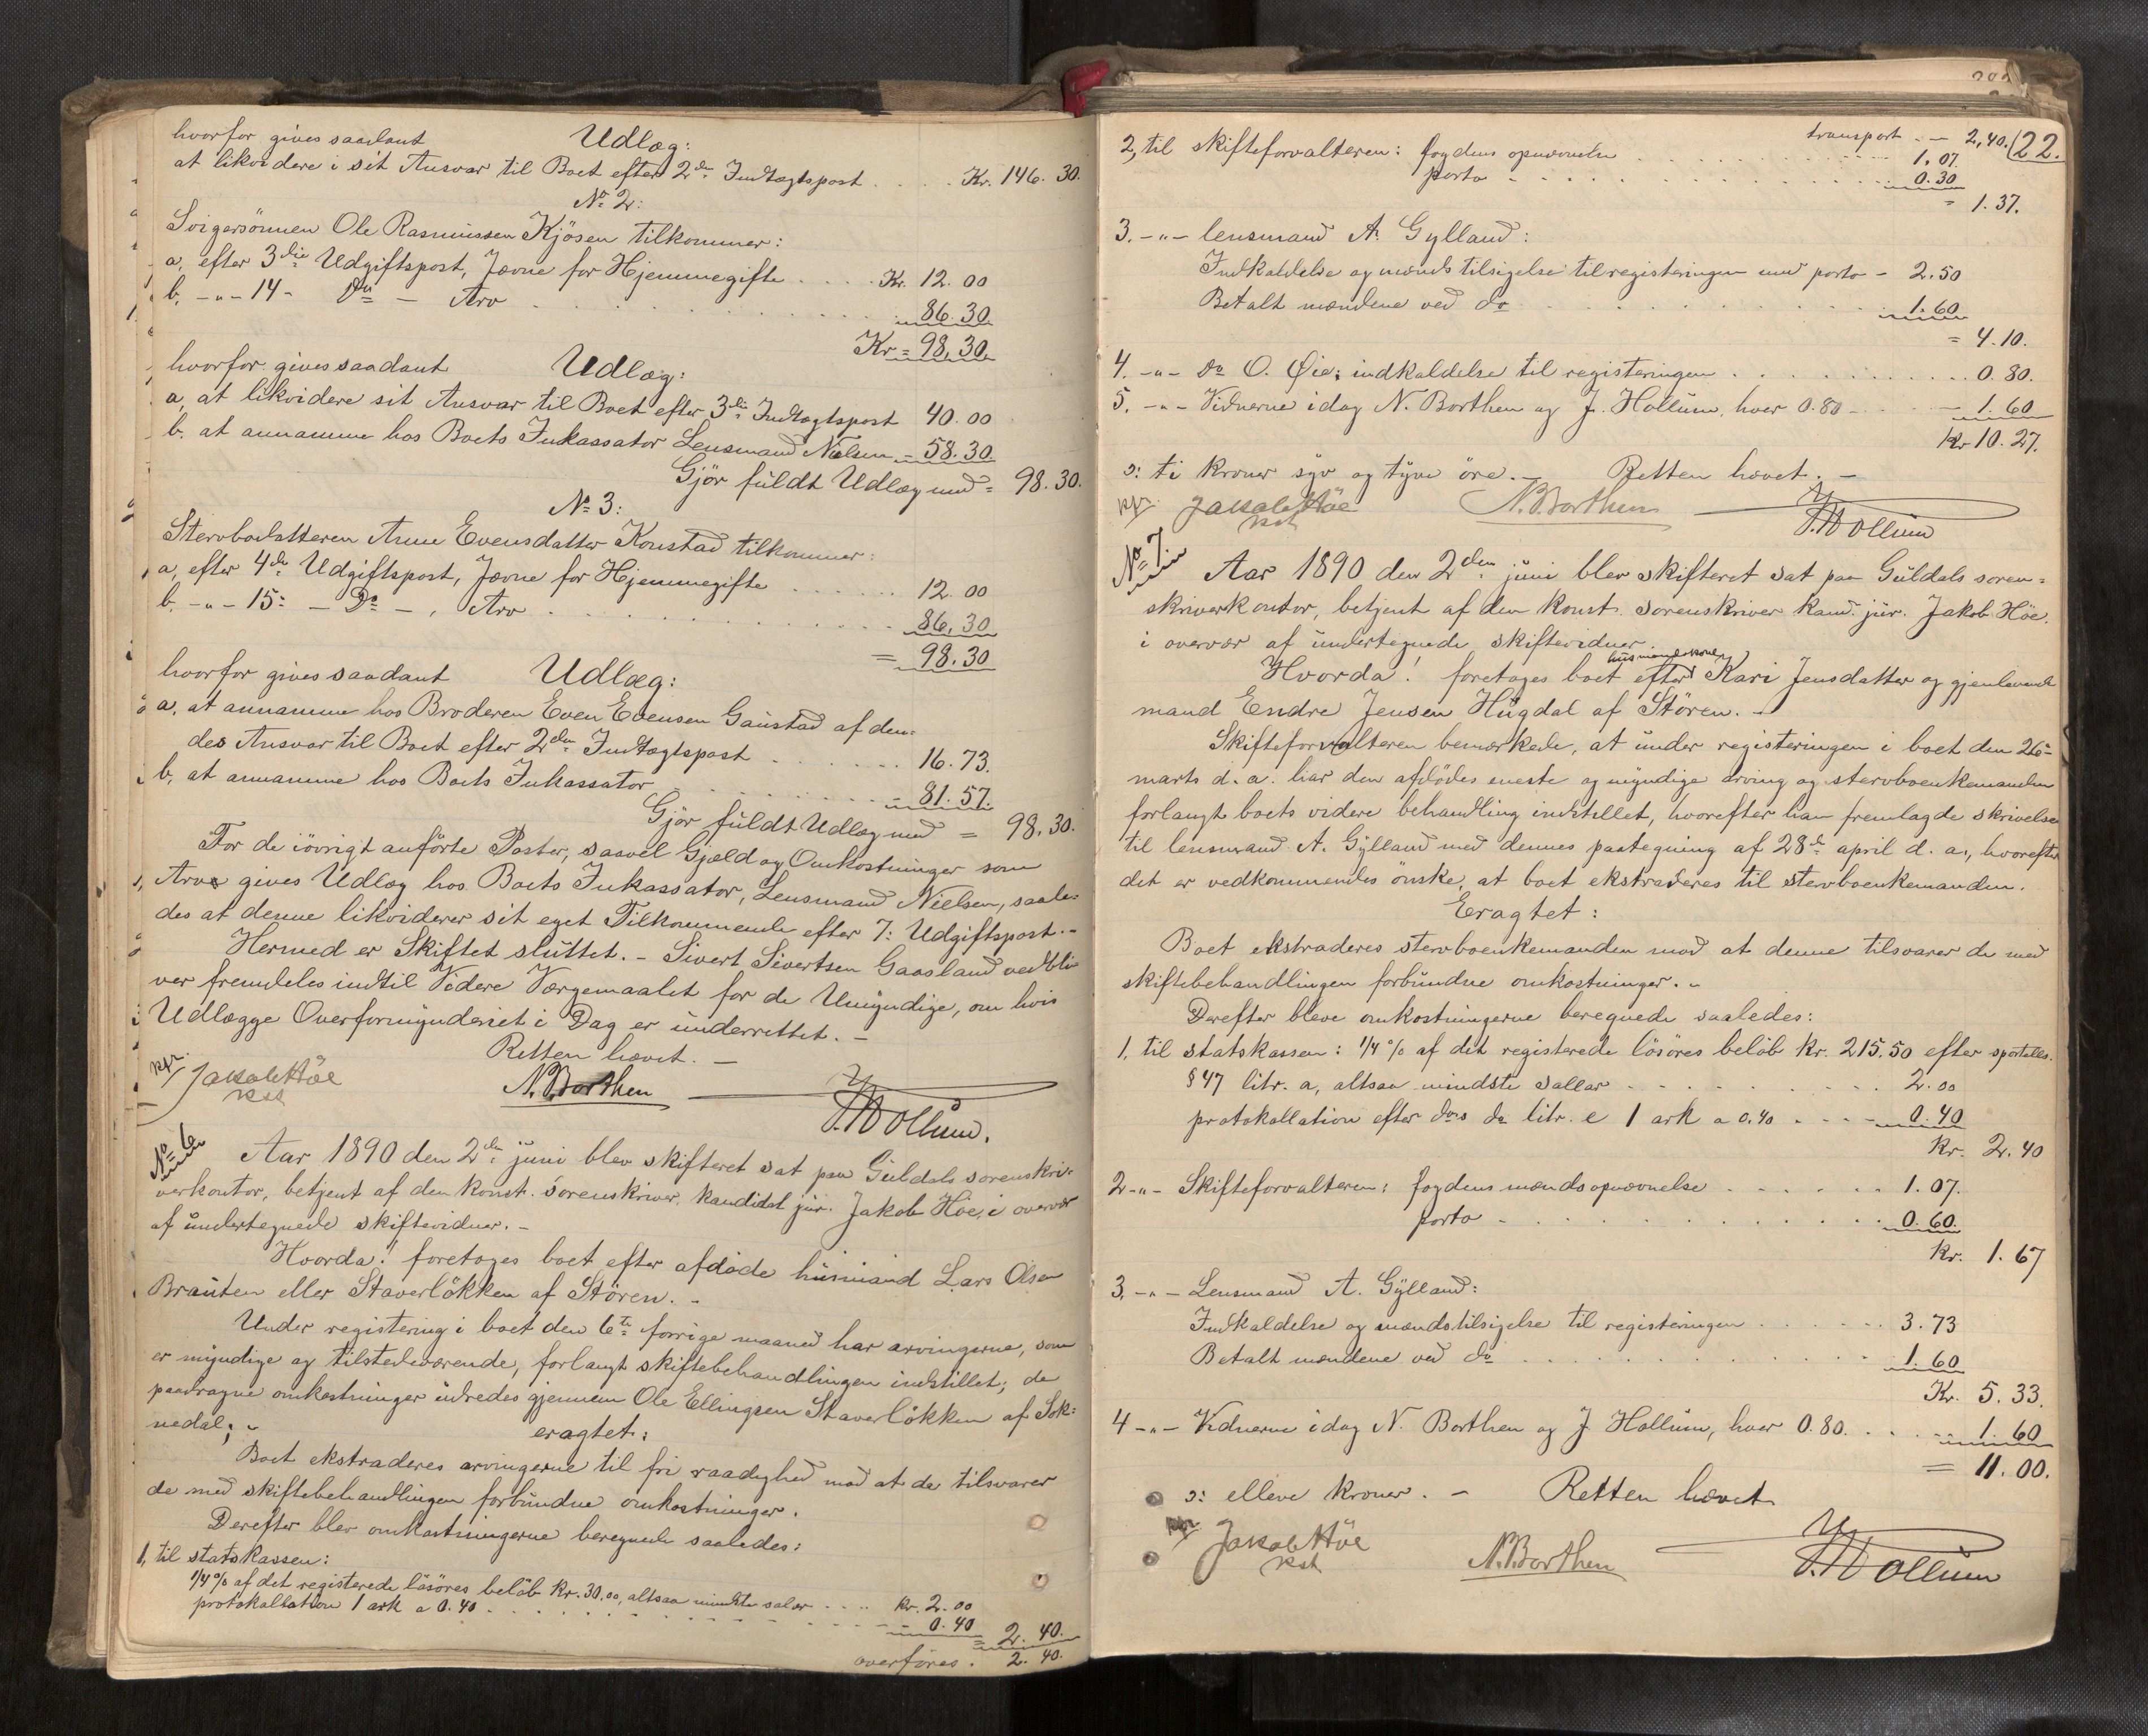 hvorfor gives saadant Udlæg:
at likvidere i sit Ansvar til Boet efter 2den Indtægtspost . . . . Kr. 146. 30.
No 2:
Svigersönnen Ole Rasmussen Kjösen tilkommer:
a, efter 3die Udgiftspost, Jævne for Hjemmegifte . . . . Kr. 12. 00
b. -"- 14- Do - Arv . . . 86. 30.
Kr = 98. 30.
hvorfor gives saadant Udlæg:
a, at likvidere sit Ansvar til Boet efter 3die Indtægtspost 40. 00
b. at annamme hos Boets Inkassator Lensmand Nielsen - 58. 30.
Gjör fuldt Udlæg med = 98. 30.
No 3:
Stervbodatteren Anne Evensdatter Konstad tilkommer:
a, efter 4de Udgiftspost, Jævne for Hjemmegifte . . . . 12. 00
b. -"- 15: - Do - , Arv . . . 86. 30
= 98. 30
hvorfor gives saadant Udlæg:
a. at annamme hos Broderen Even Evensen Gaustad af den=
des Ansvar til Boet efter 2den Indtægtspost . . . 16. 73.
b. at annamme hos Boets Inkassator . . . - 81. 57.
Gjör fuldt Udlæg med = 98. 30.
For de iövrigt anförte Poster, saavel Gjæld og Omkostninger som
Arve gives Udlæg hos Boets Inkassator, Lensmand Nielsen, saale=
des at denne likviderer sit eget Tilkommende efter 7: Udgiftspost. -
Hermed er Skiftet sluttet. - Sivert Sivertsen Gaasland vedbli=
ver fremdeles indtil Videre Værgemaalet for de Umyndige, om hvis
Udlægge Overformynderiet i Dag er underrettet. -
Retten hævet. -
Jakob Höe
kst
N. Borthen
J. Hollum.
No 6
Aar 1890 den 2den juni blev skifteret sat paa Guldals sorenskri-
verkontor, betjent af den konst. sorenskriver, kandidat jur. Jakob Höe, i overvær
af undertegnede skiftevidner. -
Hvorda! foretoges boet efter afdöde husmand Lars Olsen
Brauten eller Staverlökken af Stören. -
Under registering i boet den 6te forrige maaned har arvingerne, som
er myndige og tilstedeværende, forlangt skiftebehandlingen indstillet; de
paadragne omkostninger udredes gjennem Ole Ellingsen Staverlökken af Sok=
nedal; -
eragtet:
Boet ekstraderes arvingerne til fri raadighed mod at de tilsvarer
de med skiftebehandlingen forbundne omkostninger.
Derefter blev omkostningerne beregnede saaledes:
1, til statskassen:
1/4 % af det registerede lösöres belöb kr. 30.00, altsaa mindste salær . . . kr. 2. 00
protokollation 1 ark a 0. 40 . . . - 0. 40
= 2. 40.
overföres . 2. 40.
transport . - 2, 40. 22.
2, til skifteforvalteren: fogdens opnævnelse . . . 1. 07.
porto . . . 0. 30
= 1. 37.
3. -"- lensmand A. Gylland:
Indkaldelse og mands tilsigelse til registeringen med porto - 2. 50
Betalt mændene ved do . . . 1. 60
= 4. 10.
4. -"- do O. Öie, indkaldelse til registeringen . . . 0. 80.
5. -"- Vidnerne idag N. Borthen og J. Hollum, hver 0. 80 - . - 1. 60
Kr 10. 27.
ɔ: ti kroner syv og tyve öre. - Retten hævet. -
Jakob Höe
kst
N. Borthen
J. Hollum
No 7.
Aar 1890 den 2den juni blev skifteret sat paa Guldals soren=
skriverkontor, betjent af den konst. sorenskriver kand. jur. Jakob Höe.
i overvær af undertegnede skiftevidner.
Hvorda! foretoges boet efter husmandskone Kari Jensdatter og gjenlevende
mand Endre Jensen Hugdal af Stören. -
Skifteforvalteren bemærkede, at under registeringen i boet den 26-
marts d. a. har den afdödes eneste og myndige arving og stervboenkemanden
forlangt boets videre behandling indstillet, hvorefter han fremlagde skrivelse
til lensmand A. Gylland med dennes paategning af 28de april d. a., hvorefter
det er vedkommendes önske, at boet ekstraderes til stervboenkemanden.
Eragtet:
Boet ekstraderes stervboenkemanden mod at denne tilsvarer de med
skiftebehandlingen forbundne omkostninger. -
Derefter bleve omkostningerne beregnede saaledes:
1, til statskassen: 1/4 % af det registerede lösöres belöb kr. 215. 50 efter sportells.
§ 47 litr. a, altsaa mindste sallær . . . 2. 00
protokollation efter ds do litr. e 1 ark a 0. 40 . . . - 0. 40
Kr. 2. 40
2 -"- Skifteforvalteren: fogdens mandsopnævnelse . . . 1. 07.
porto . . . 0. 60.
Kr. 1. 67
3. -"- Lensmand A. Gylland:
Indkaldelse og mandstilsigelse til registeringen . . . 3. 73
Betalt mændene ved do . . . 1. 60
Kr. 5. 33.
4 -"- Vidnerne idag N. Borthen og J. Hollum, hver 0. 80. . . . 1. 60
= 11. 00.
ɔ: elleve kroner. - Retten hævet
Jakob Höe
kst
N. Borthen
J. Hollum